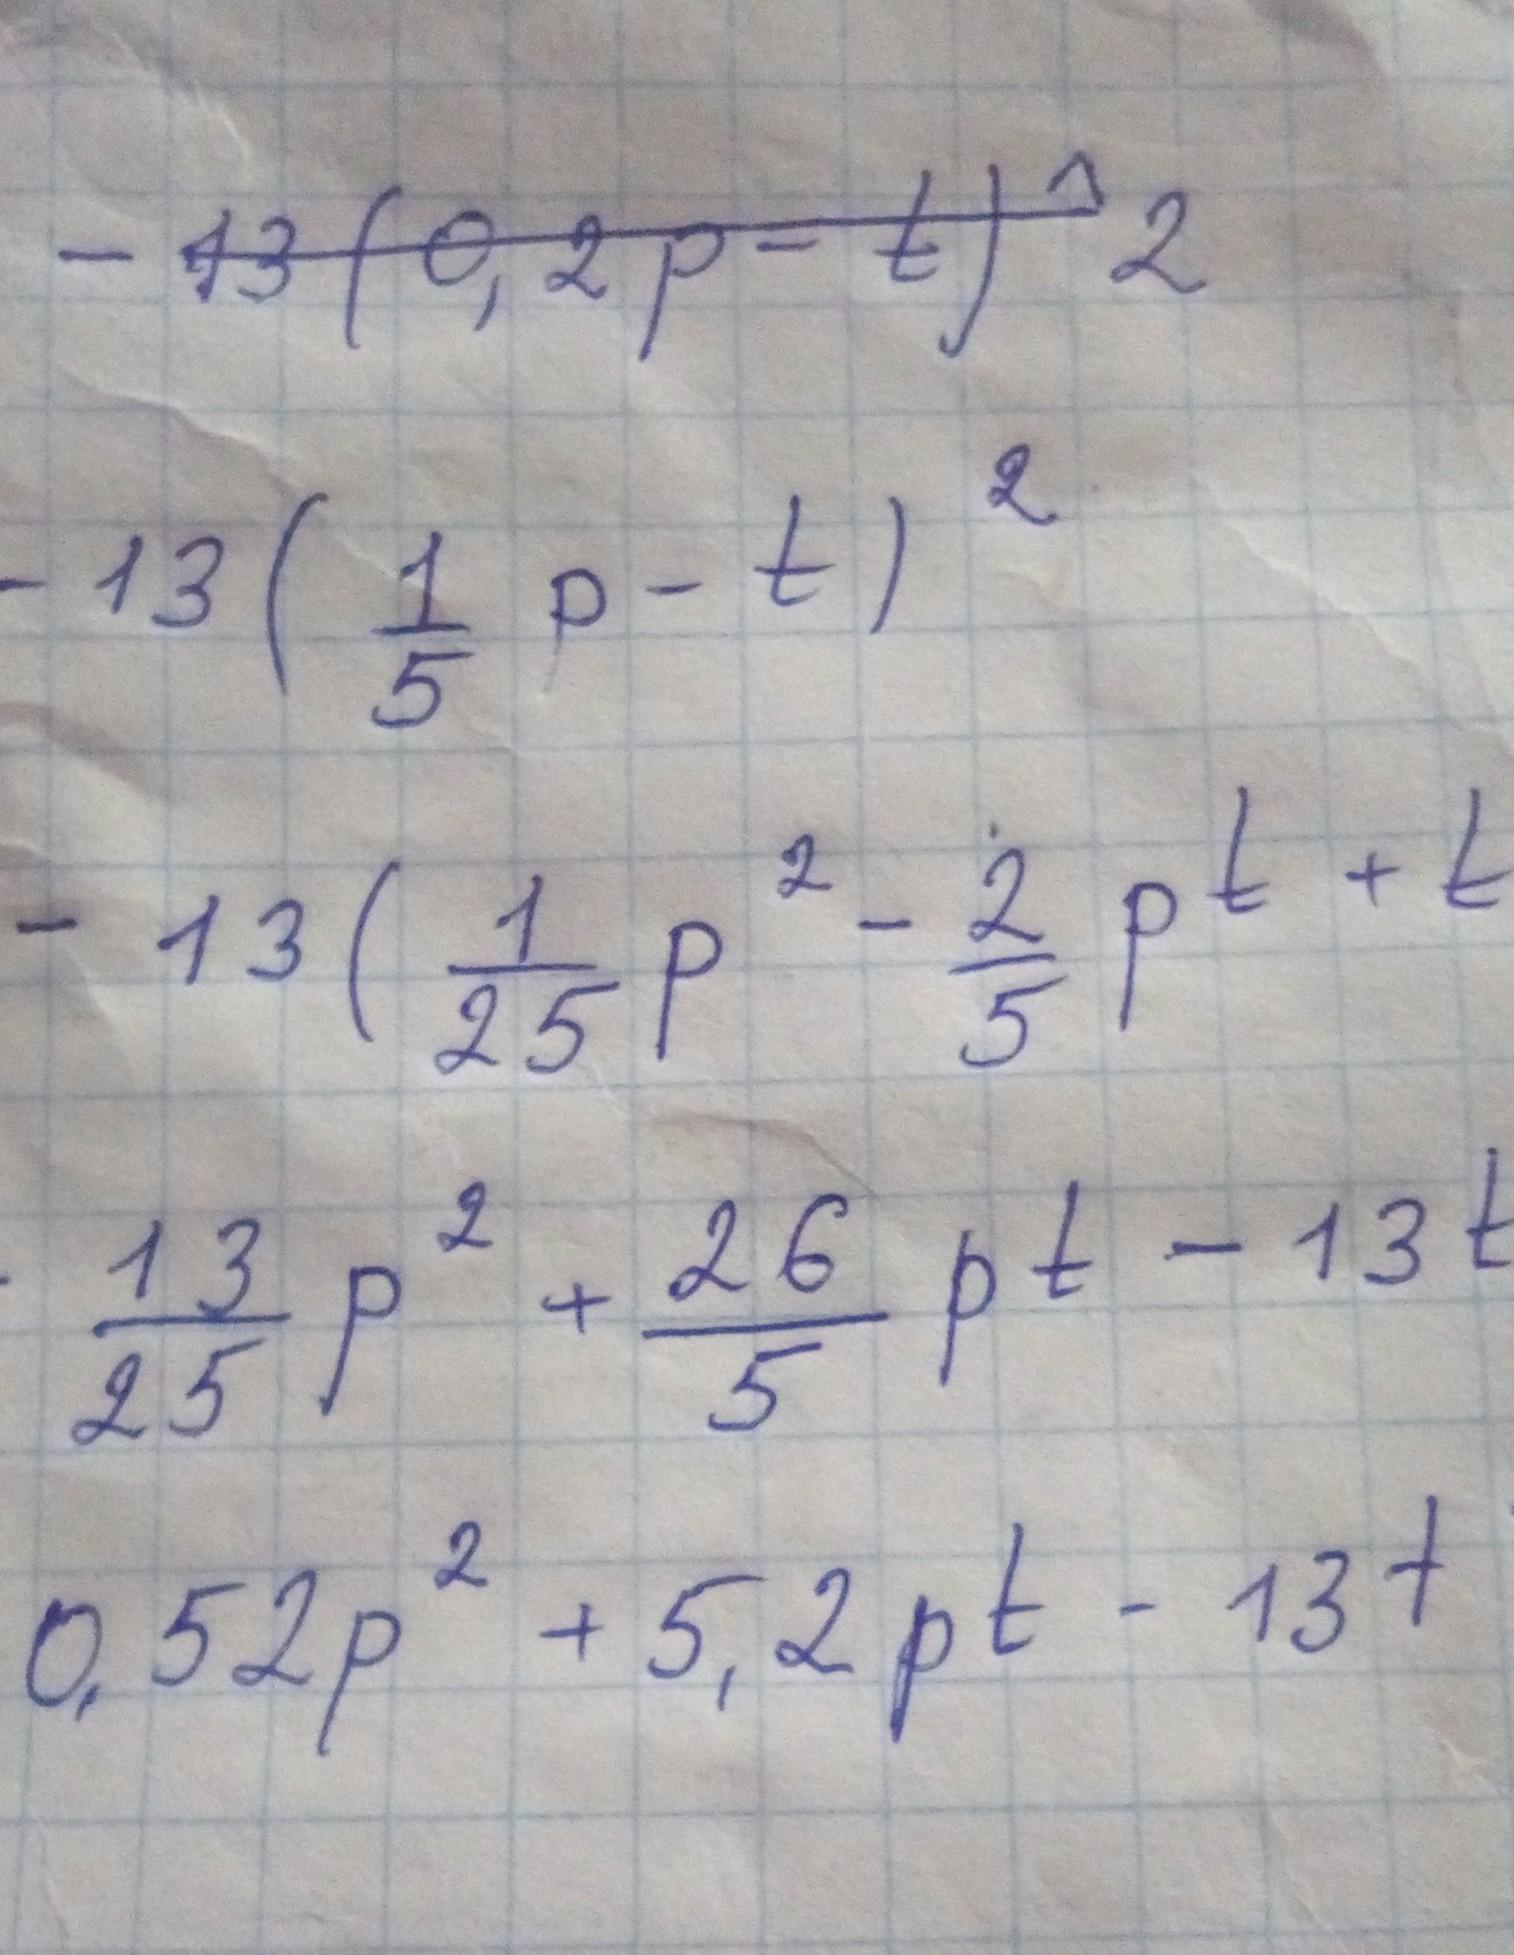 - 13 ( 0,2p - t ) ^ 2
- 13 ( 1/5 p - t ) ²
- 13 ( 1/25 p² - 2/5 pt + t
- 13/25 p² + 26/5 pt - 13t
0,52p² + 5,2pt - 13t